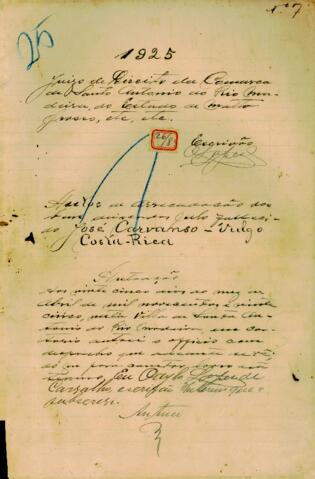 Nº 7
25
1925
Juizo de Direito da Comarca
de Santo Antonio do Rio Ma-
deira, do Estado de Matto
Grosso, etc, etc.
26/8
Escrivão
Lopes
Autos de arrecadação dos
bens
do José Carvanso - Vulgo
Costa-Rica
Autuação
Aos vinte cinco dias do mez de
Abril de mil novecentos e vinte
cinco, nesta Villa de Santo An-
tonio do Rio Madeira, em car-
torio autuei o officio com
despacho que adeante se vê,
do que para constar lavro este
termo. Eu
Carvalho, escrivão interino que
subscrevi.